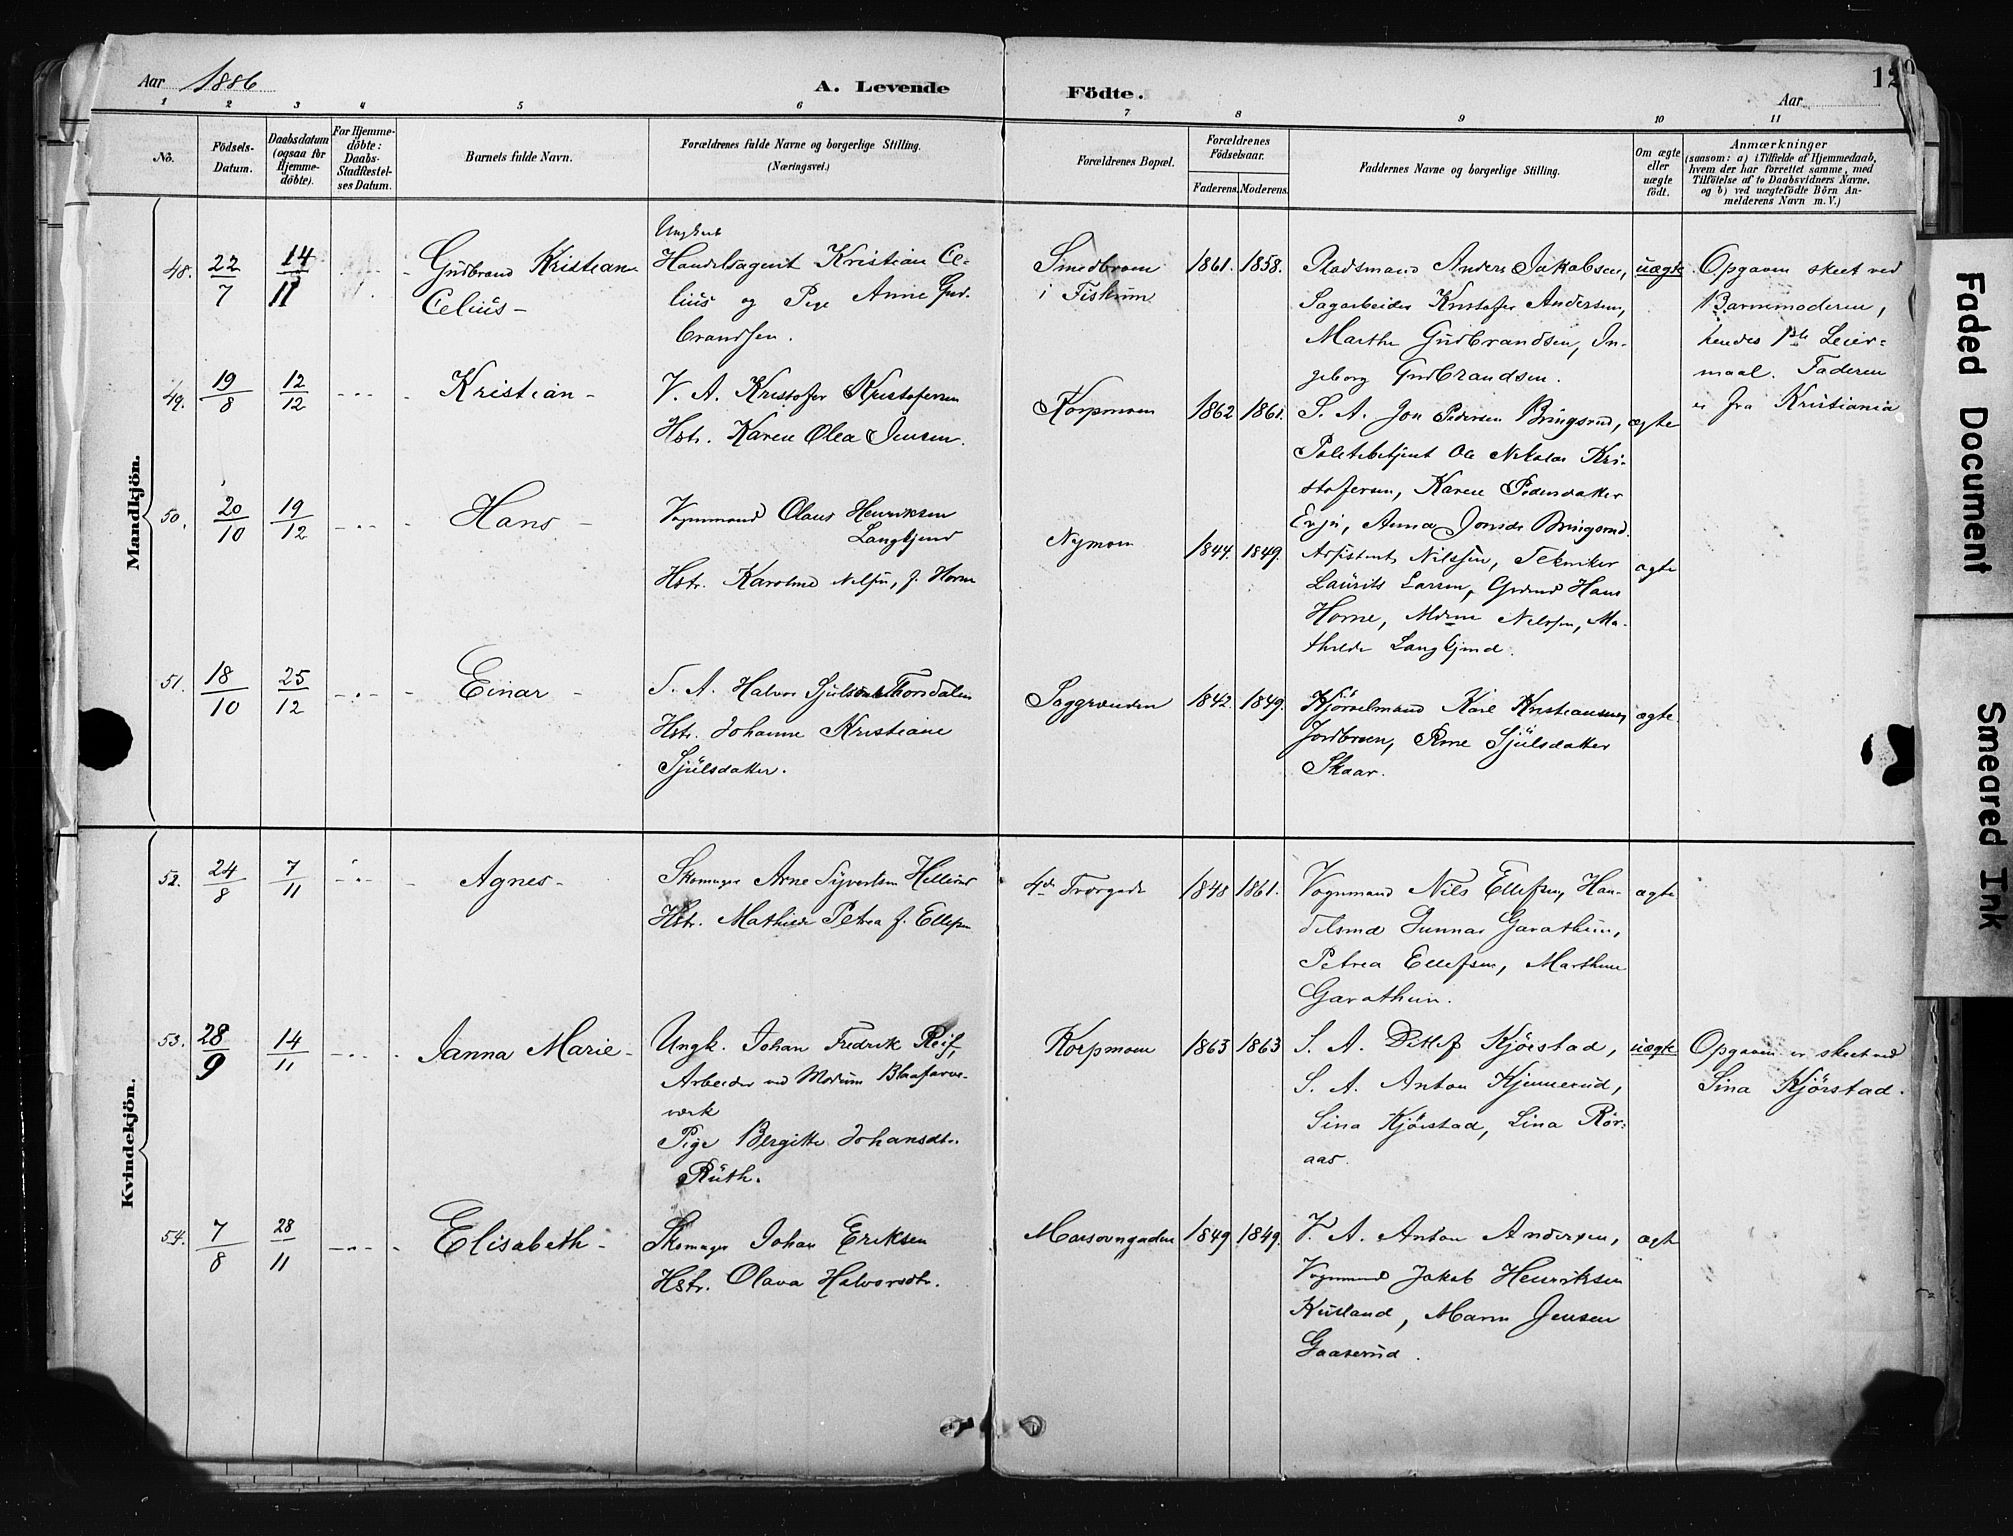 Aar 1886
A. Levende Födte.
12
Aar
1 2 3 4 5 6 7 8 9 10 11
No.
Födsels-
Datum.
Daabsdatum
(ogsaa for
Hjemme-
döbte).
For Hjemme-
döbte:
Daabs-
Stadfestel-
ses Datum.
Barnets fulde Navn.
Forældrenes fulde Navne og borgerlige Stilling.
(Næringsvei.)
Forældrenes Bopæl.
Forældrenes
Födselsaar.
Faderens. Moderens.
Faddernes Navne og borgerlige Stilling.
Om ægte
eller
uægte
födt.
Anmærkninger
(saasom: a) i Tilfælde af Hjemmedaab,
hvem der har forrettet samme, med
Tilföielse af to Daabsvidners Navne.
og b) ved uægtefödte Börn An-
melderens Navn m. V.)
Mandkjön.
48. 22/7 14/11
Gudbrand Kristian
Celius -
Ungkarl
Handelsagent Kristian Ce-
lius og Pige Anne Gud-
brandsen.
Smedbroen
i Fiskum
1861. 1858.
Pladsmand Anders Jakobsen,
Sagarbeider Kristofer Andersen,
Marthe Gudbrandsen, In-
geborg Gudbrandsen.
uægte
Opgaven skeet ved
Barnemoderen,
hendes 1ste Leier-
maal. Faderen
er fra Kristiania
49. 19/8 12/12
Kristian -
V. A. Kristofer Kristofersen
Hstr. Karen Olea Jensen.
Korpmoen
1862 1861.
S. A. Jon Pedersen Bringsrud,
Politibetjent Ole Nikolai Kri-
stofersen, Karen Pedersdatter
Evju, Anna Bringsrud.
ægte
50. 20/10 19/12
Hans -
Vognmand Olaus Henriksen
Langkjend
Hstr. Karoline Nilsen, f. Horne
Nymoen
1844. 1849.
Assistent Nilssen, Tekniker
Laurits Larsen, Hans
Horne, Nilssen, Ma-
thilde Langkjend.
ægte
51. 18/10 25/12
Einar -
S. A. Halvor Thorsdalen
Hstr. Johanne Kristiane
Sjulsdatter.
Saggrenden
1842. 1849.
Karl Kristiansen
Jordbroen, Sjulsdatter
Skaar.
ægte
Kvindekjön.
52. 24/8 7/11
Agnes -
Skomager Arne Syvertsen
Hstr. Mathilde Petrea f. Ellefsen
4de
1848 1861.
Vognmand Nils Ellefsen, Han-
delsmd Gunnar Garathun,
Petrea Ellefsen, Marthine
Garathun.
ægte
53. 28/9 14/11
Janna Marie -
Ungk. Johan Fredrik Reif,
Arbeider ved Modum Blaafarve-
værk
Pige Bergitte Johansdtr.
Ruth.
Korpmoen
1863 1863
S. A. Ditlef Kjörstad,
S. A. Anton Kjennerud,
Sina Kjörstad, Lina Rör-
aas.
uægte
Opgaven er skeet ved
Sina Kjörstad.
54. 7/8 28/11
Elisabeth -
Skomager Johan Eriksen
Hstr. Olava Halvorsdtr.
1849 1849.
V. A. Anton Andersen,
Vognmand Jakob Henriksen
Maren Jensen
Gaaserud.
ægte
Faded Document
Smeared Ink